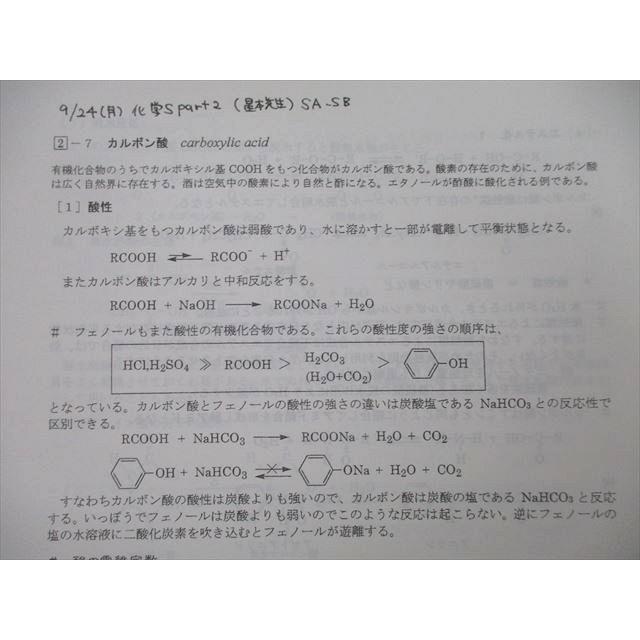 9/24(月) 化学S part2 (星本先生) SA~SB
2－7 カルボン酸 carboxylic acid
有機化合物のうちでカルボキシル基 COOH をもつ化合物がカルボン酸である。酸素の存在のために、カルボン酸
は広く自然界に存在する。酒は空気中の酸素により自然と酢になる。エタノールが酢酸に酸化される例である。
［1］酸性
カルボキシ基をもつカルボン酸は弱酸であり、水に溶かすと一部が電離して平衡状態となる。
RCOOH ⇌ RCOO⁻ + H⁺
またカルボン酸はアルカリと中和反応をする。
RCOOH + NaOH ⟶ RCOONa + H₂O
# フェノールもまた酸性の有機化合物である。これらの酸性度の強さの順序は、
HCl,H₂SO₄ ≫ RCOOH > H₂CO₃ (H₂O+CO₂) > OH
となっている。カルボン酸とフェノールの酸性の強さの違いは炭酸塩である NaHCO₃ との反応性で
区別できる。
RCOOH + NaHCO₃ ⟶ RCOONa + H₂O + CO₂
OH + NaHCO₃ ✕⟶ ONa + H₂O + CO₂
すなわちカルボン酸の酸性は炭酸よりも強いので、カルボン酸は炭酸の塩である NaHCO₃ と反応
する。いっぽうでフェノールは炭酸よりも弱いのでこのような反応は起こらない。逆にフェノールの
塩の水溶液に二酸化炭素を吹き込むとフェノールが遊離する。
# 酸の電離定数